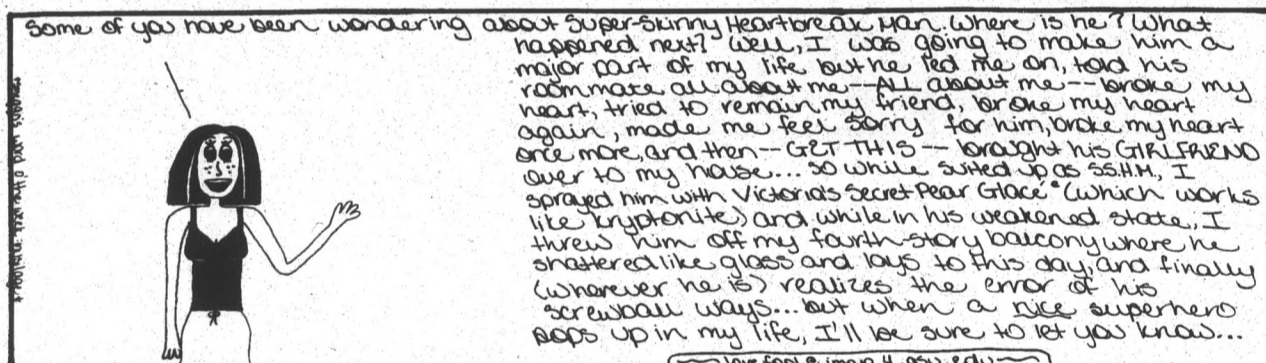 Some of you have been wondering about Super-Skinny Heartbreak Man. Where is he? What
happened next? Well, I was going to make him a
major part of my life but he led me on, told his
roommate all about me -- ALL about me -- broke my
heart, tried to remain my friend, broke my heart
again, made me feel sorry for him, broke my heart
once more, and then -- GET THIS -- brought his GIRLFRIEND
over to my house... so while suited up as SSHM, I
sprayed him with Victoria's Secret Pear Glacé* (which works
like kryptonite) and while in his weakened state, I
threw him off my fourth-story balcony where he
shattered like glass and lays to this day, and finally
(wherever he is) realizes the error of his
screwball ways... but when a nice superhero
pops up in my life, I'll be sure to let you know...